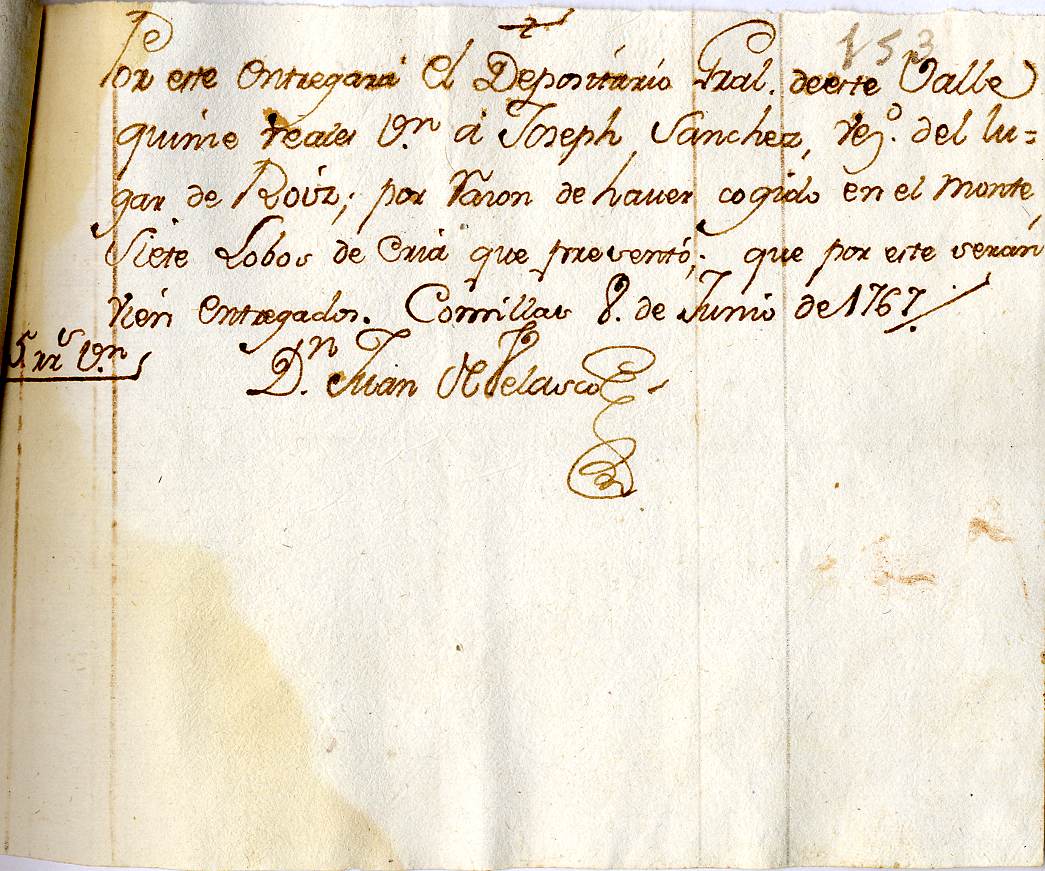 153
Por este entregará el Depositário Gral. deeste Valle
quinse reales Vn. a Joseph Sanchez, vezo. del lu=
gar de Roíz; por razon de hauer cogido en el monte
siete Lobos de cria que presentó; que por este serán
vien entregados. Comillas 8. de Junio de 1767.
5 rrs Vn.
Dn. Juan Velasco